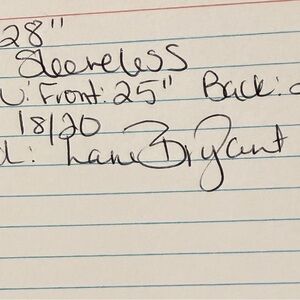 28"
Sleeveless
: Front: 25" Back:
18/20
: Lane Bryant